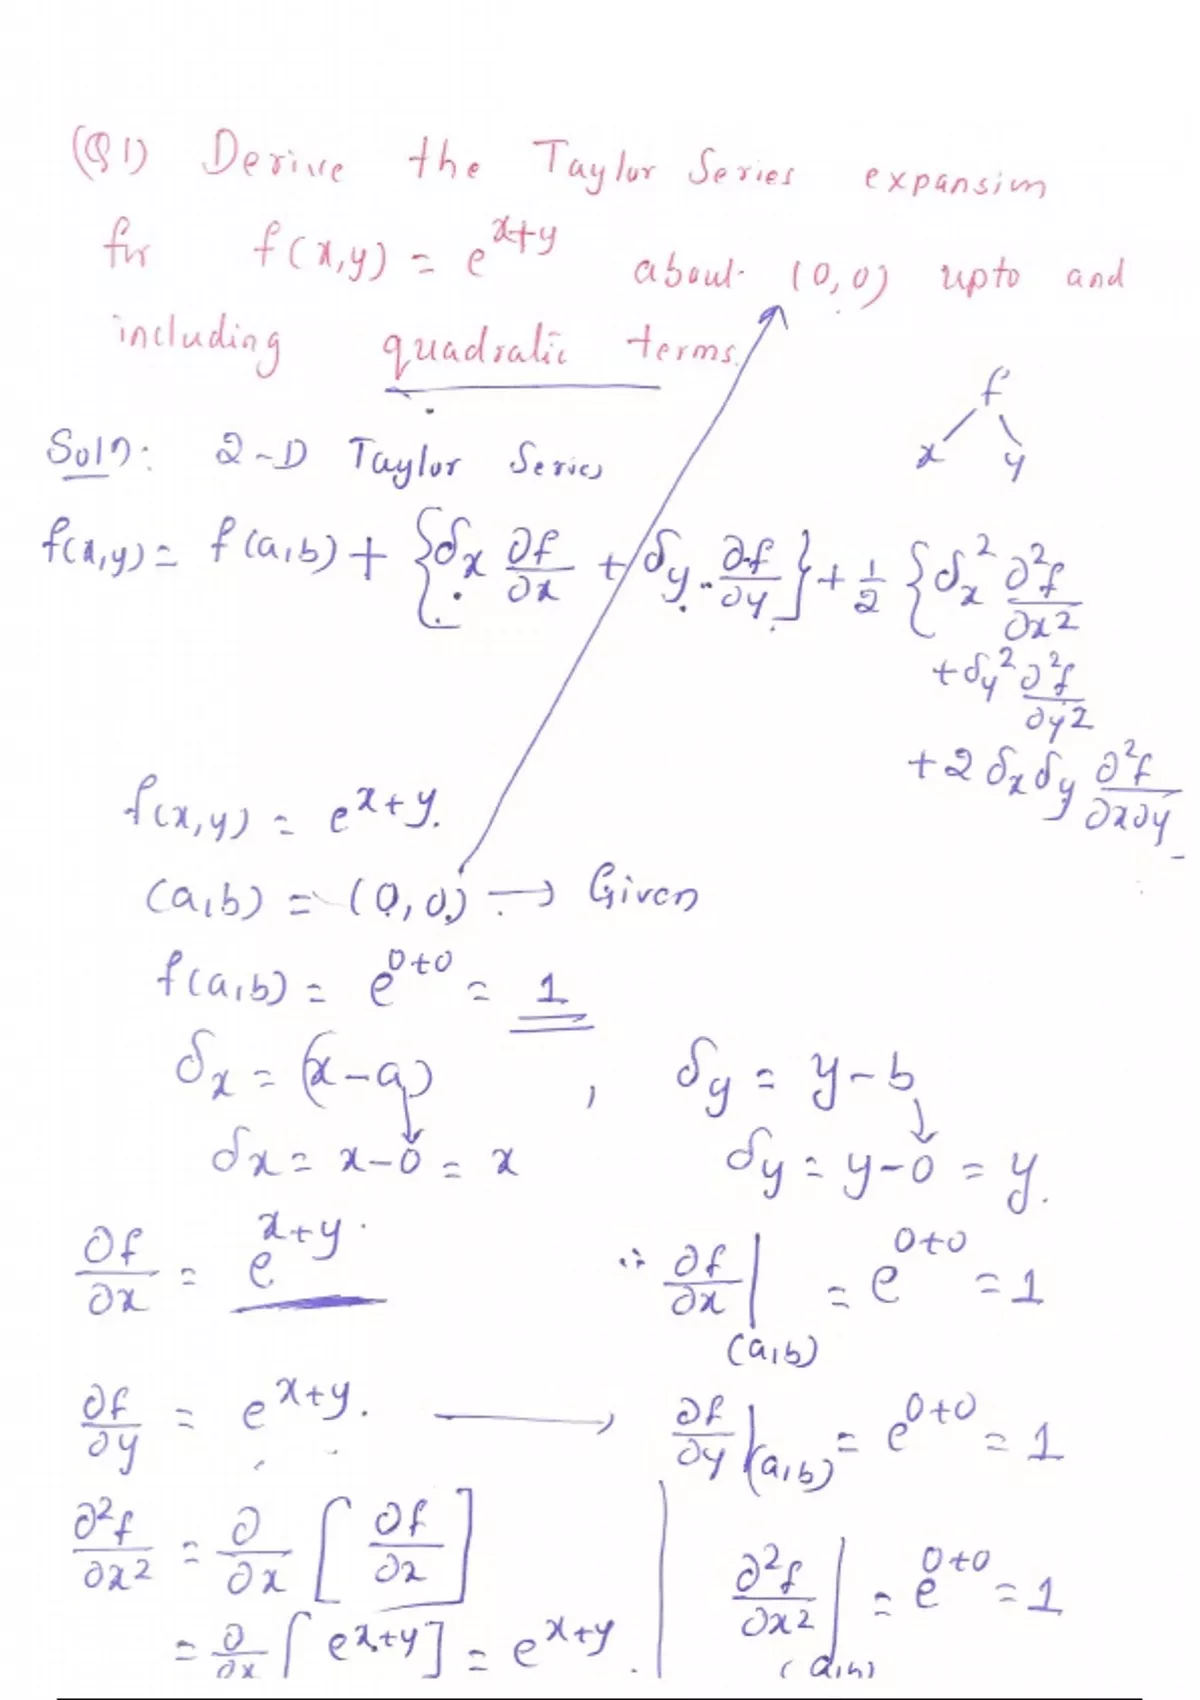 (Q1) Derive the Taylor Series expansion
for f(x,y) = e^{x+y} about (0,0) upto and
including quadratic terms.
f
x y
Soln: 2-D Taylor Series
f(x,y) = f(a,b) + {δx ∂f/∂x + δy . ∂f/∂y} + 1/2 {δx² ∂²f/∂x²
+ δy² ∂²f/∂y²
+ 2 δx δy ∂²f/∂x∂y
f(x,y) = e^{x+y}.
(a,b) = (0,0) → Given
f(a,b) = e^{0+0} = 1
δx = (x-a) , δy = y-b
δx = x-0 = x δy = y-0 = y.
∂f/∂x = e^{x+y}. ∴ ∂f/∂x |(a,b) = e^{0+0} = 1
∂f/∂y = e^{x+y}. → ∂f/∂y |(a,b) = e^{0+0} = 1
∂²f/∂x² = ∂/∂x [∂f/∂x] ∂²f/∂x² |(a,b) = e^{0+0} = 1
= ∂/∂x [e^{x+y}] = e^{x+y}.